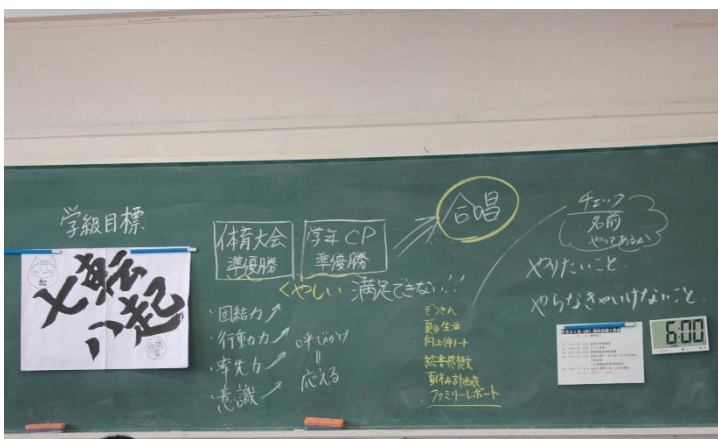 学級目標
七転
八起
体育大会
準優勝
学年CP
準優勝
合唱
くやしい 満足できない!!
・団結力
・行動力
・率先力
・意識
呼びかけ
応える
ぞうきん
夏の生活
向上伸ノート
読書感想
夏休み計画表
ファミリーレポート
チェック
名前
やってあるか
やりたいこと
やらなきゃいけないこと
6:00